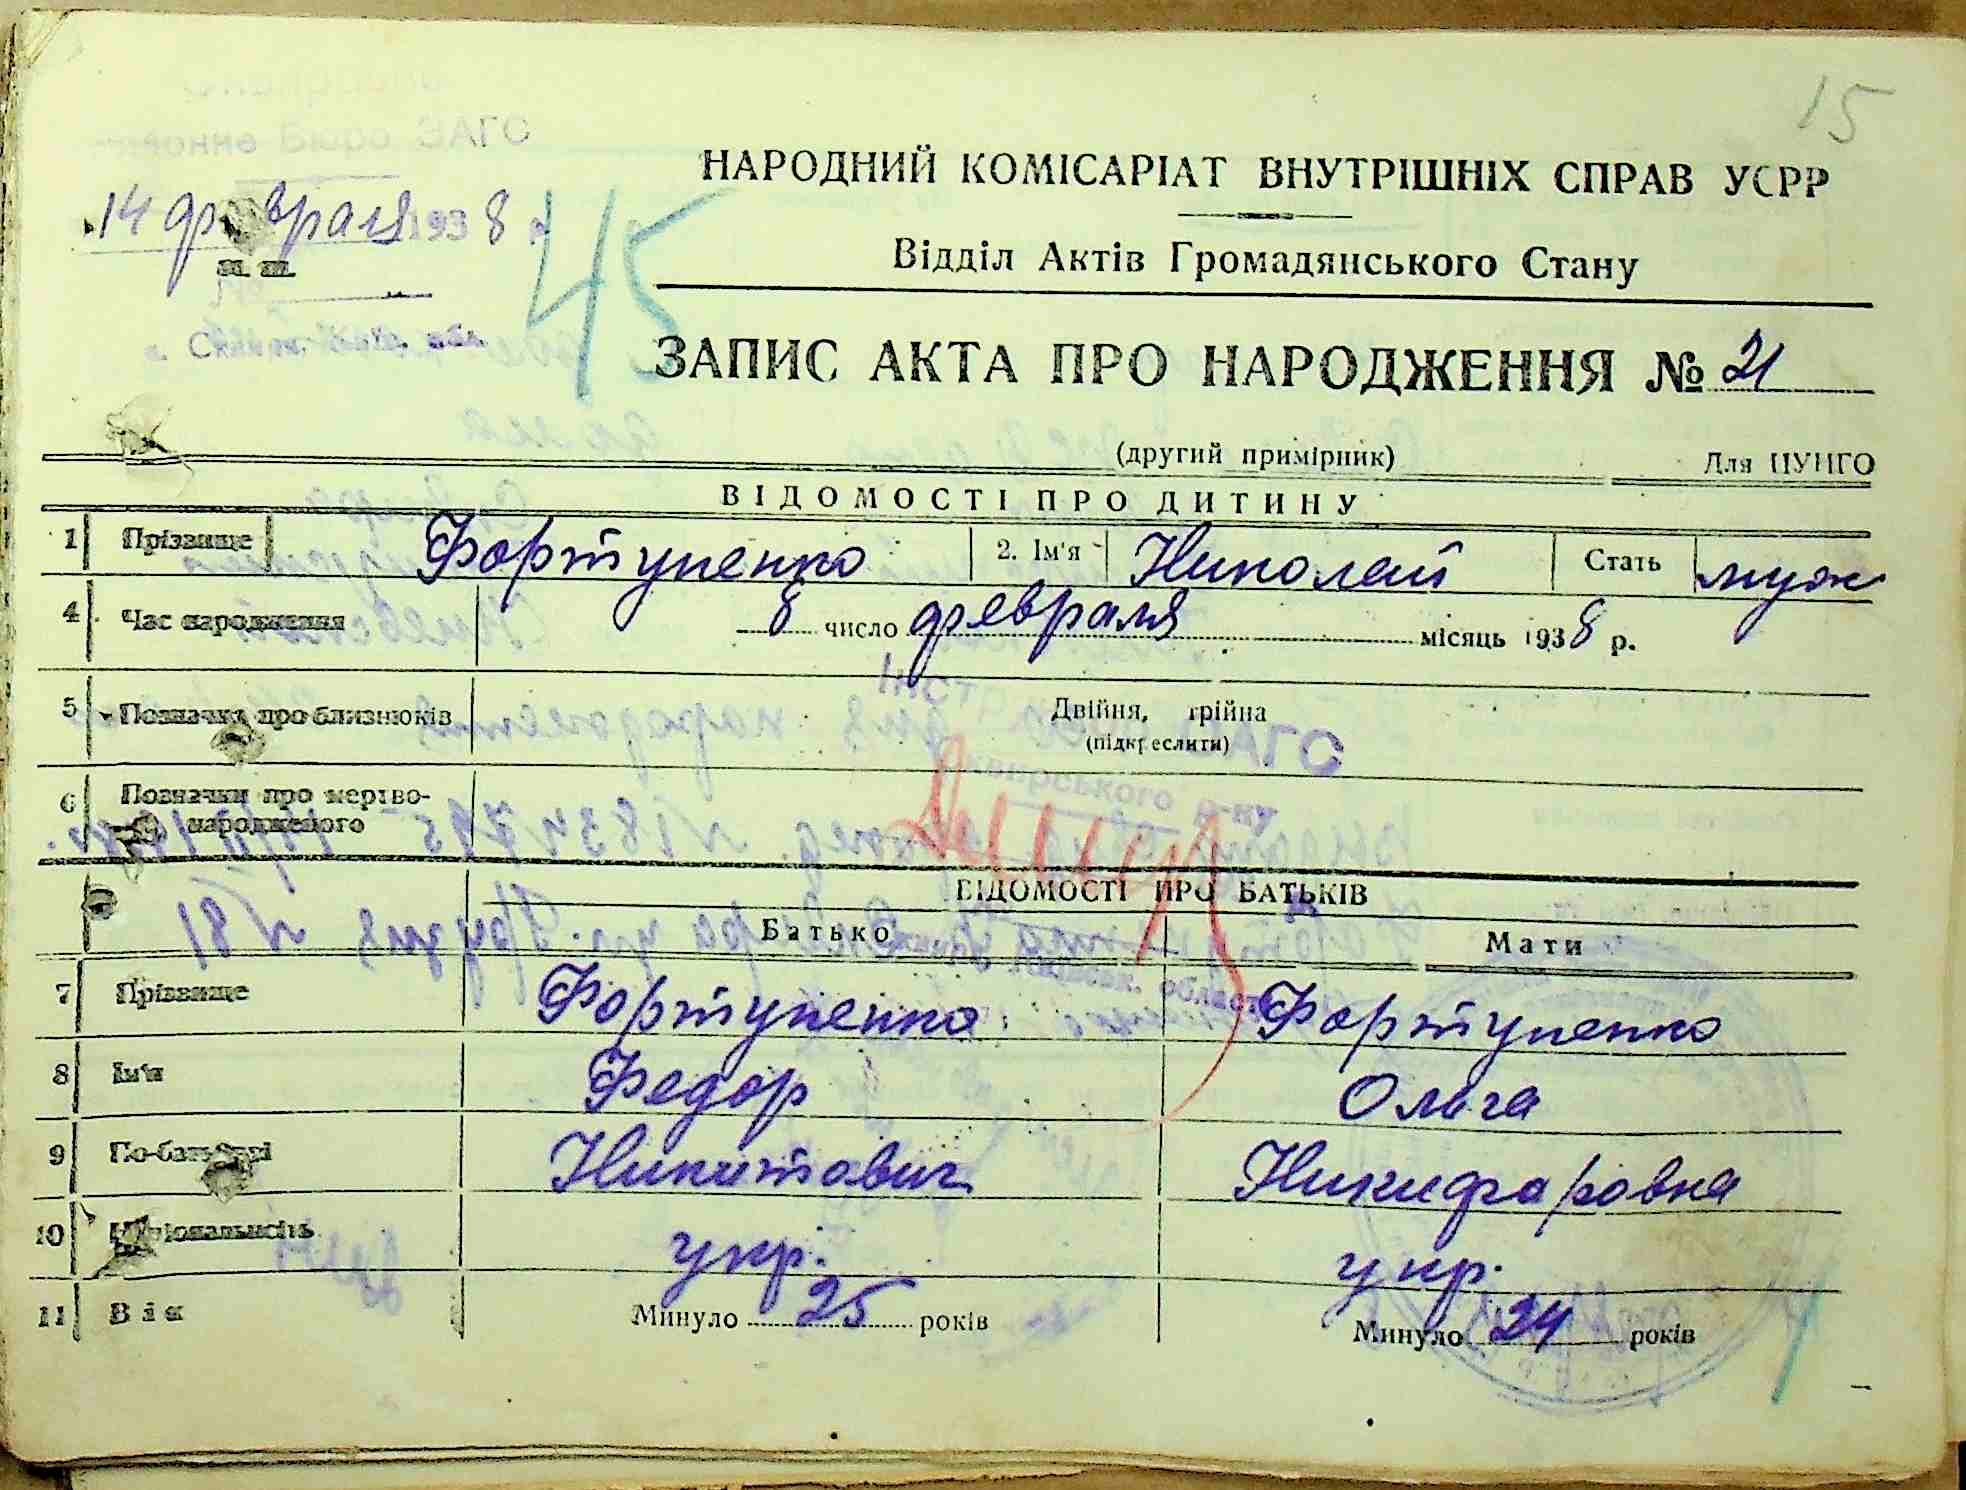 15
НАРОДНИЙ КОМІСАРІАТ ВНУТРІШНІХ СПРАВ УСРР
14 февраля 1938
45
Відділ Актів Громадянського Стану
ЗАПИС АКТА ПРО НАРОДЖЕННЯ № 21
(другий примірник) Для ЦУНГО
ВІДОМОСТІ ПРО ДИТИНУ
1 Прізвище Фортупенко 2. Ім'я Николай Стать муж
4 Час народження 8 число февраля місяць 1938 р.
5 Позначка про близнюків Двійня, трійня
(підкреслити)
ЗАГС
6 Позначки про мертво-
народженого
ВІДОМОСТІ ПРО БАТЬКІВ
Батько Мати
7 Прізвище Фортупенко Фортупенко
8 Ім'я Федор Ольга
9 По-батькові Никитович Никифаровна
10 Національність укр. укр.
11 Вік Минуло 25 років Минуло 24 років